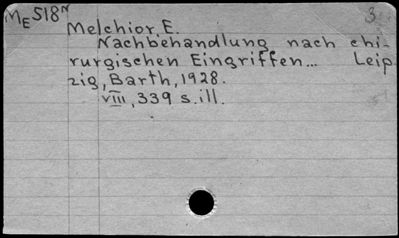 ME518N 3
Melchior, E.
Nachbehandlung nach chi-
rurgischen Eingriffen... Leip
zig, Barth, 1928.
VIII, 339 s. ill.